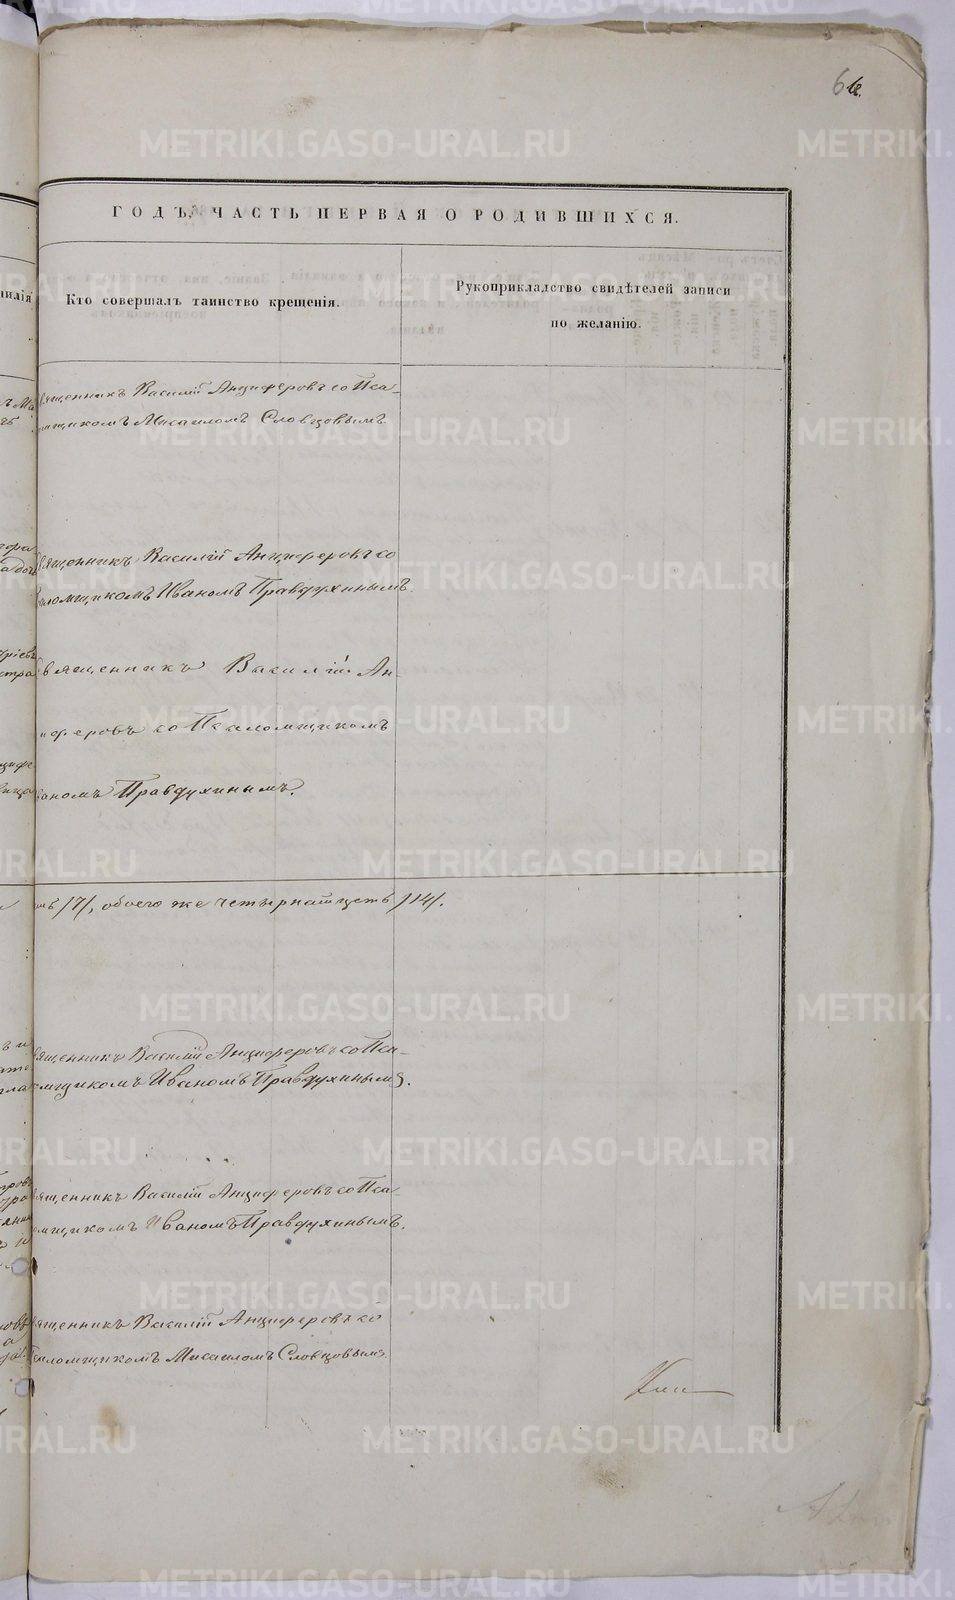 6
ГОДЪ, ЧАСТЬ ПЕРВАЯ О РОДИВШИХСЯ.
Кто совершалъ таинство крещенія.
Рукоприкладство свидѣтелей записи
по желанію.
вященникъ Василій Анциферовъ со Пса-
мщикомъ Мисаиломъ Словцовымъ.
вященникъ Василій Анциферовъ со
аломщикомъ Иваномъ Правдухинымъ.
Священникъ Василій Ан-
циферовъ со Псаломщикомъ
ваномъ Правдухинымъ.
мь /7/, обоего же четырнатцеть /14/.
вященникъ Василій Анциферовъ со Пса-
омщикомъ Иваномъ Правдухинымъ.
вященникъ Василій Анциферовъ со Пса-
омщикомъ Иваномъ Правдухинымъ.
вященникъ Василій Анциферовъ со
Псаломщикомъ Мисаиломъ Словцовымъ.
METRIKI.GASO-URAL.RU